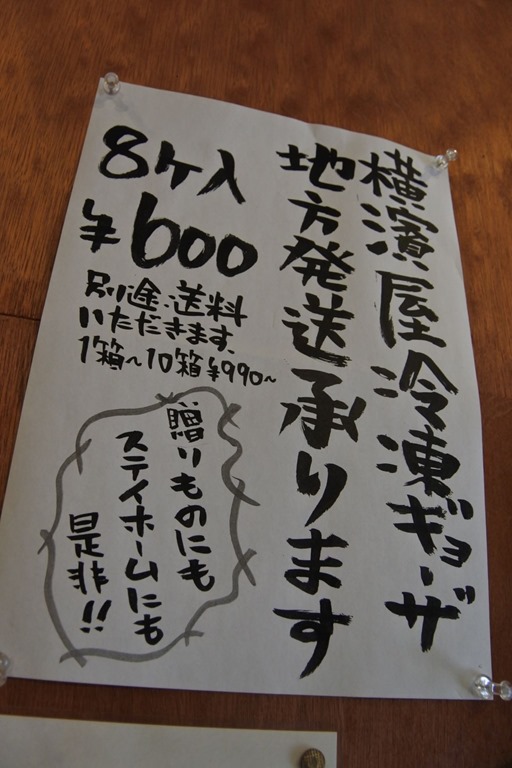 横濱屋冷凍ギョーザ
地方発送承ります
8ケ入
¥600
別途、送料
いただきます。
1箱〜10箱¥990〜
贈りものにも
ステイホームにも
是非!!